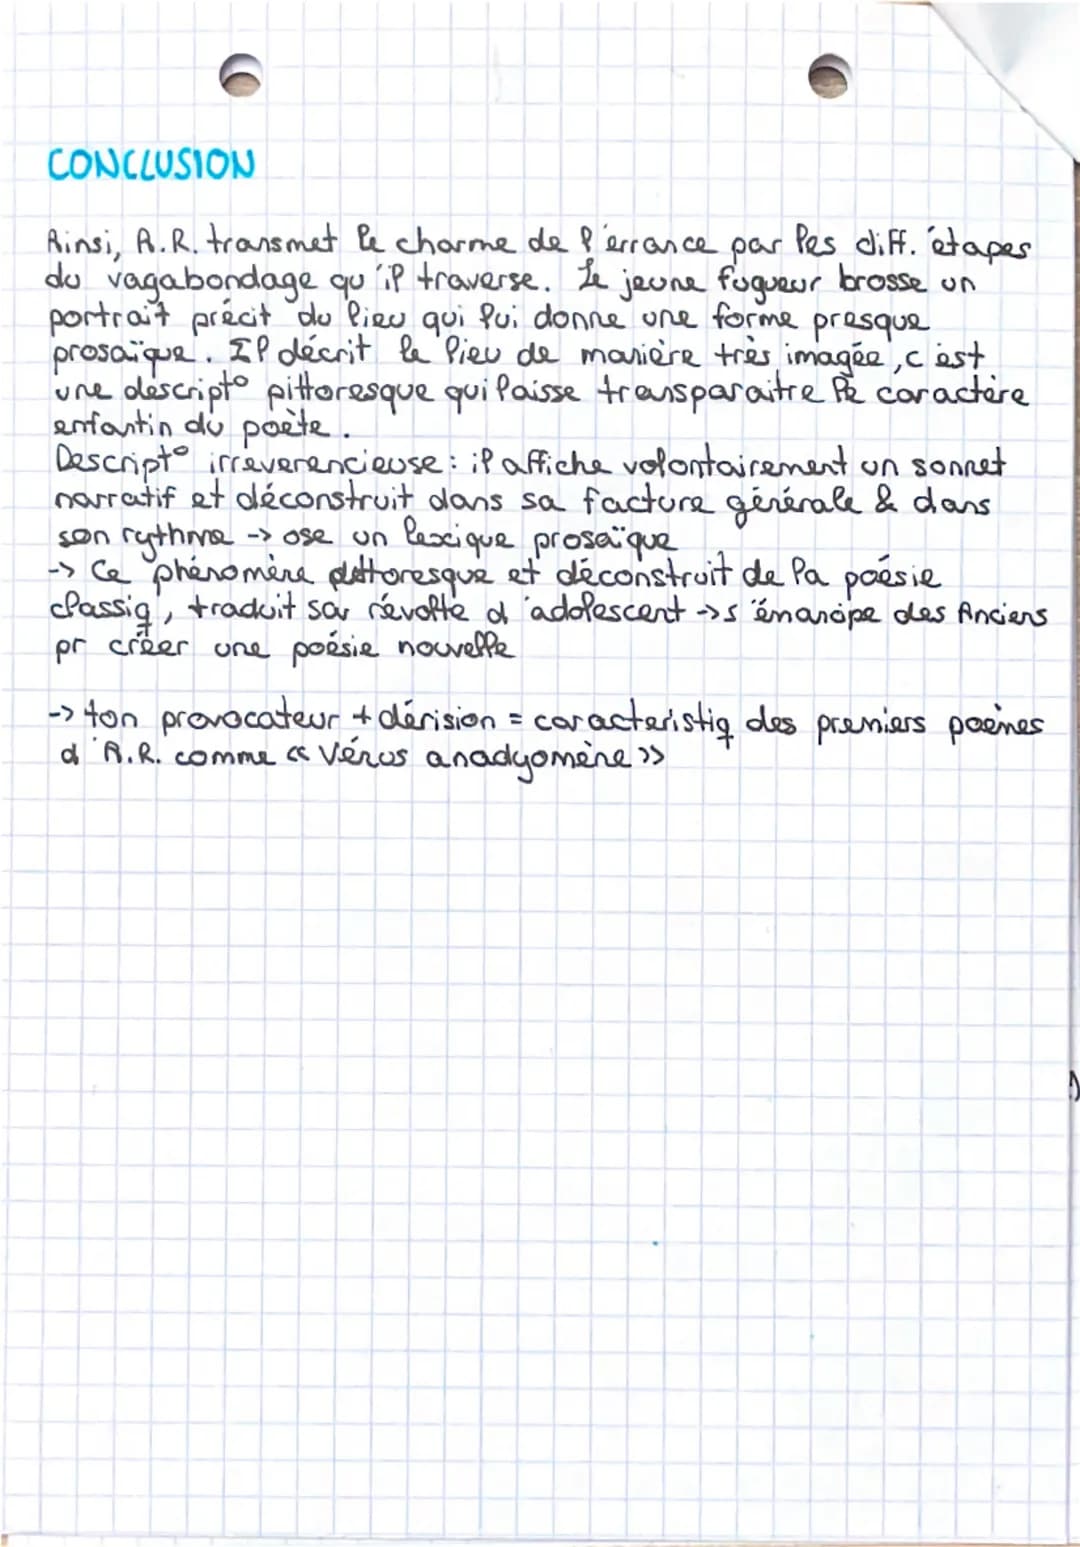 CONCLUSION
Ainsi, A.R. transmet le charme de l'errance par les diff. étapes
du vagabondage qu'il traverse. Le jeune fugueur brosse un
portrait précit du lieu qui lui donne une forme presque
prosaïque. Il décrit le lieu de manière très imagée, c'est
une descript° pittoresque qui laisse transparaitre le caractère
enfantin du poète.
Descript° irrévérencieuse : il affiche volontairement un sonnet
narratif et déconstruit dans sa facture générale & dans
son rythme -> ose un lexique prosaïque
-> Ce phénomène pittoresque et déconstruit de la poésie
classiq, traduit sa révolte d'adolescent -> s'émancipe des Anciens
pr créer une poésie nouvelle
-> ton provocateur + dérision = caractéristiq des premiers poèmes
d'A.R. comme « Vénus anadyomène »